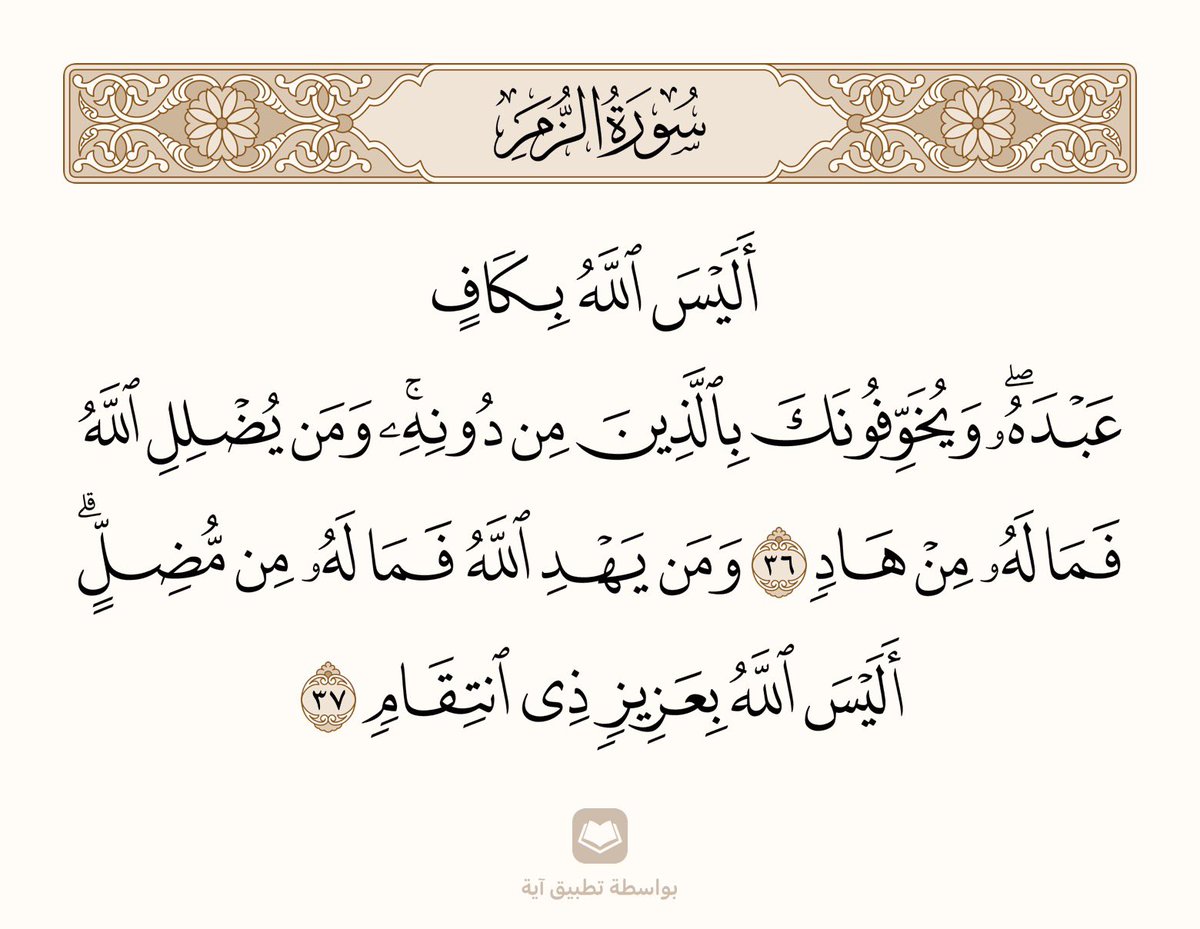 سُورَةُ الزُّمَرِ
أَلَيۡسَ ٱللَّهُ بِكَافٍ
عَبۡدَهُۥۖ وَيُخَوِّفُونَكَ بِٱلَّذِينَ مِن دُونِهِۦۚ وَمَن يُضۡلِلِ ٱللَّهُ
فَمَا لَهُۥ مِنۡ هَادٖ ٣٦ وَمَن يَهۡدِ ٱللَّهُ فَمَا لَهُۥ مِن مُّضِلٍّۗ
أَلَيۡسَ ٱللَّهُ بِعَزِيزٖ ذِي ٱنتِقَامٖ ٣٧
بواسطة تطبيق آية